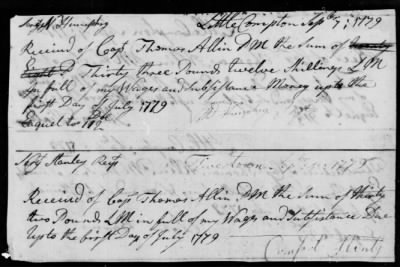 Little Compton Sept 7; 1779
Receivd of Capt Thomas Allin DM the Sum of
Thirty three Pounds twelve Shillings LM
in full of my Wages and Subsistance Money up to the
first Day of July 1779
Equel to
Stanley Regt
1779
Receivd of Capt Thomas Allin DM the Sum of thirty
two Pounds LM in full of my Wages and Subsistance Due
up to the first Day of July 1779